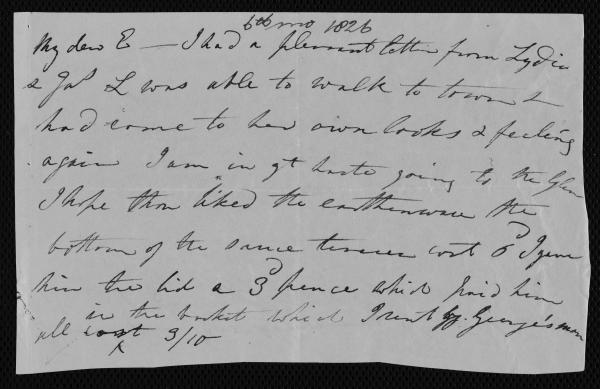 6th mo 1826
My dear E — I had a pleasant letter from Lydia
& Jas L was able to walk to town &
had come to her own looks & feeling
again I am in gt haste going to the Glen
I hope thou liked the earthenware the
bottom of the sauce tureen cost 6d I gave
him the lid & 3d pence which paid him
in the basket which I sent by George's man
all cost 3/10